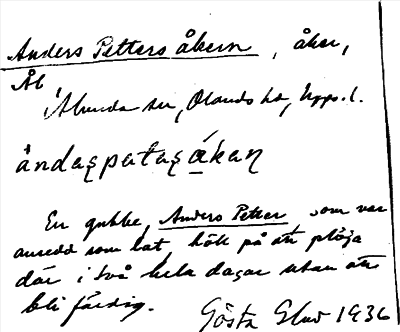 Anders Petters åkern, åker,
Åb
Almunda sn, Olands hd, Upps. l.
ándaşpataşákaɳ
En gubbe, Anders Petter, som var
ansedd som lat, höll på att plöja
där i två hela dagar utan att
bli färdig.
Gösta Elw 1936